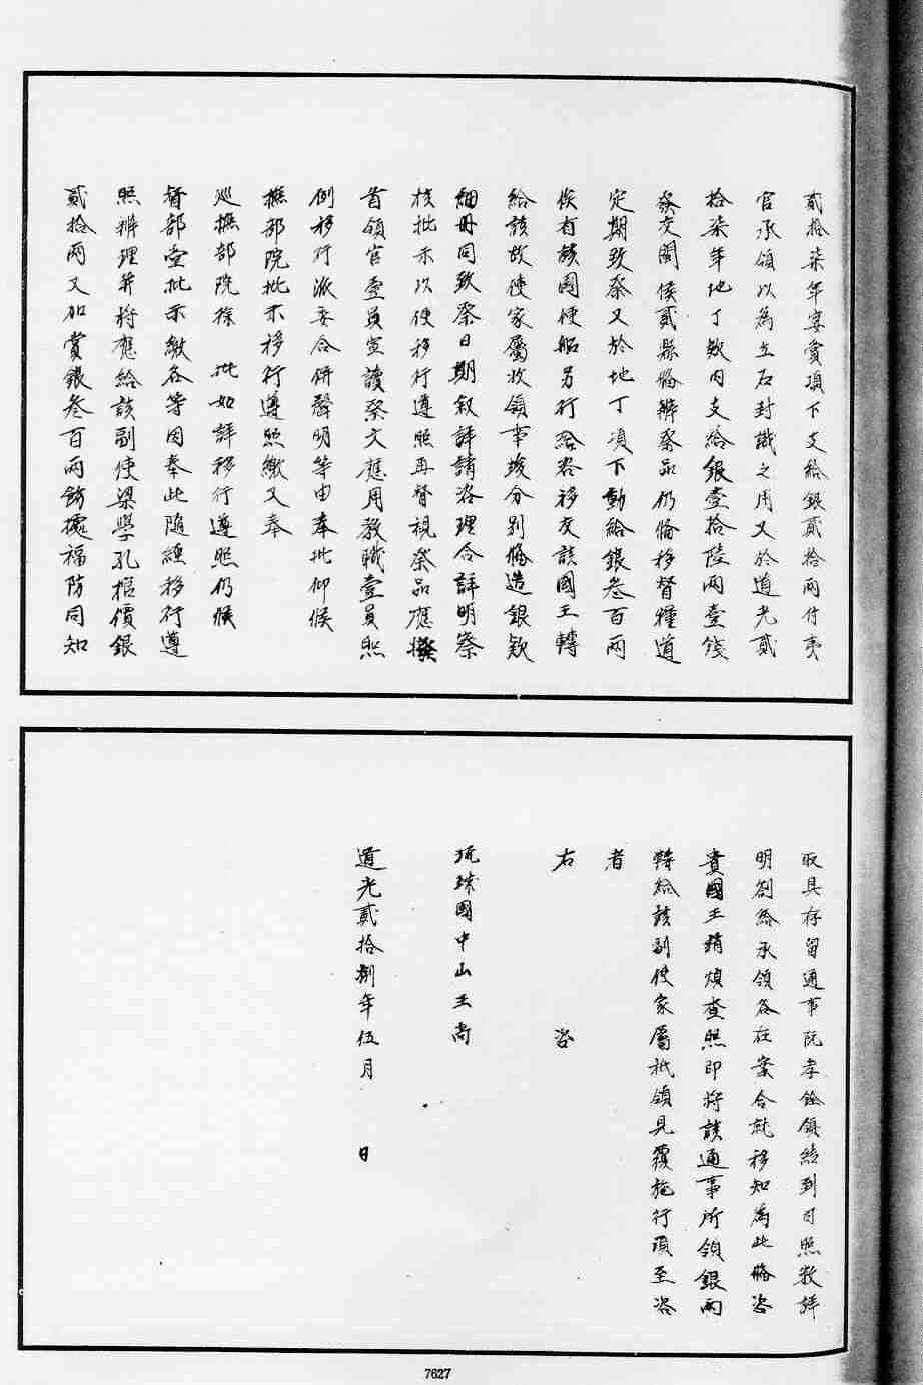 貳拾柒年宴賞項下支給銀貳拾兩付夷
官承領以為立石封識之用又於道光貳
拾柒年地丁欵內支給銀壹拾陸兩壹錢
發交閩侯貳縣俻辦祭品仍俻移督糧道
定期致祭又於地丁項下動給銀叁百兩
俟有該國便船另行給咨移交該國王轉
給該故使家屬收領事竣分别俻造銀欵
細冊同致祭日期叙詳請咨理合詳明察
核批示以便移行遵照再督視祭品應撥
首領官壹員宣讀祭文應用教職壹員照
例移行派委合併聲明等由奉批仰候
撫部院批示移行遵照繳又奉
巡撫部院徐　批如詳移行遵照仍候
督部堂批示繳各等因奉此隨經移行遵
照辦理并将應給該副使梁學孔棺價銀
貳拾兩又加賞銀叁百兩飭據福防同知
取具存留通事阮孝銓領結到司照数詳
明劄給承領各在案合就移知為此俻咨
貴國王請煩查照即将該通事所領銀兩
轉給該副使家屬祇領見覆施行須至咨
者
右　　咨
琉球國中山王尚
道光貳拾捌年伍月　　日
7627